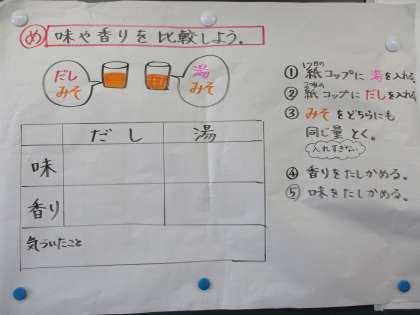 め 味や香りを比較しよう。
だし
みそ
湯
みそ
だし 湯
味
香り
気づいたこと
1つ目の
① 紙コップに 湯を入れる。
2つ目の
② 紙コップに だしを入れる。
③ みそをどちらにも
同じ量 とく。
入れすぎない
④ 香りをたしかめる。
⑤ 味をたしかめる。